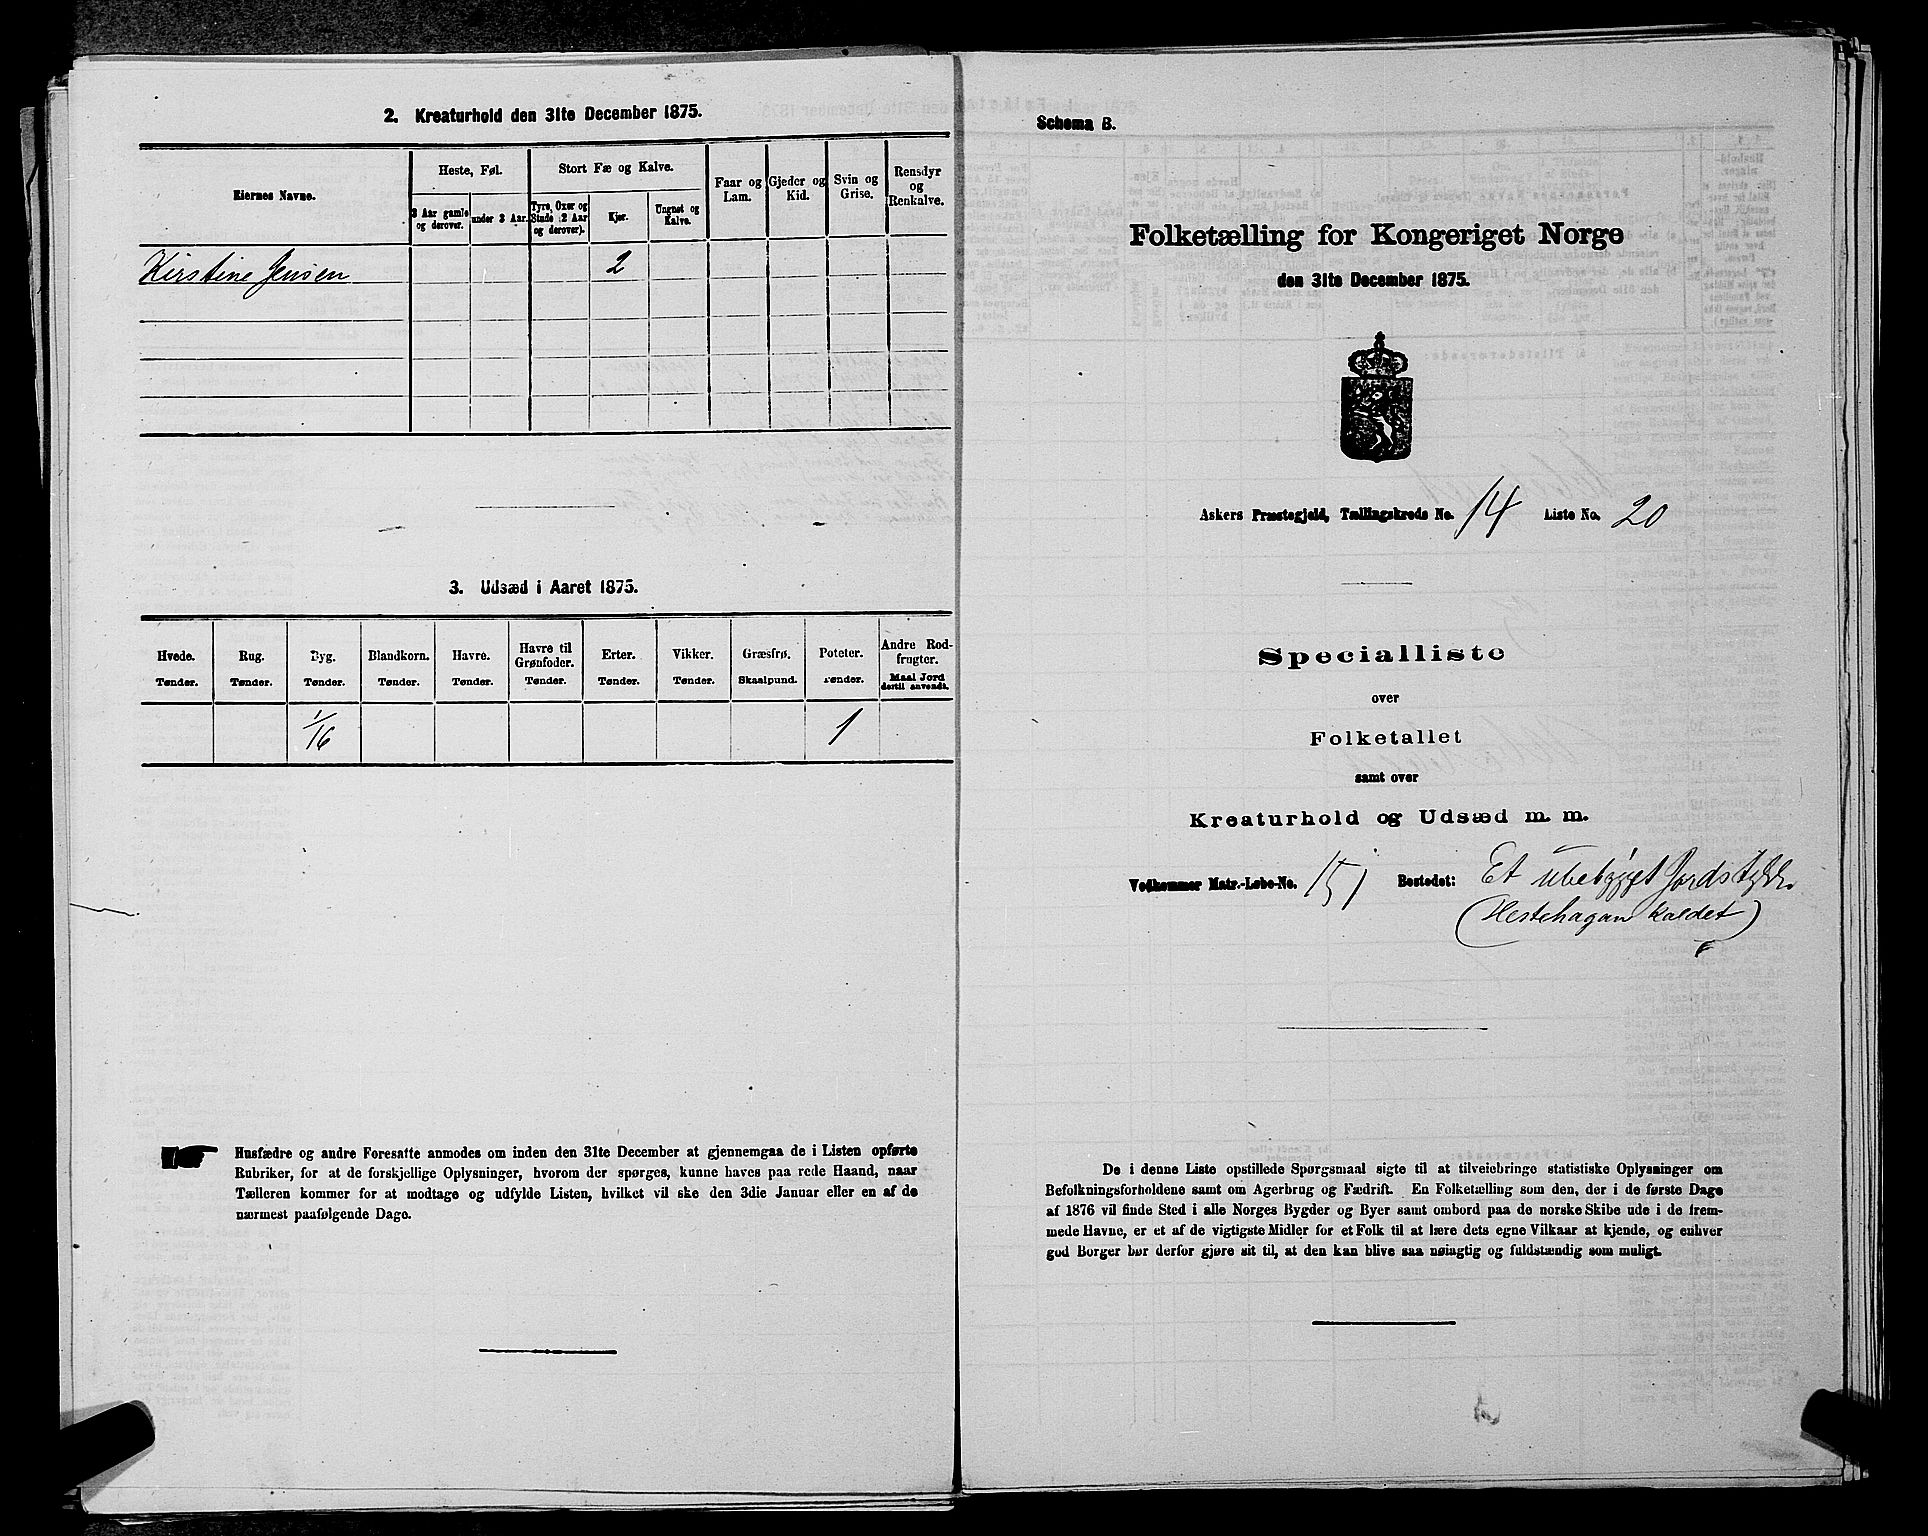 2. Kreaturhold den 31te December 1875.
Eiernes Navne.
Heste, Føl.
3 Aar gamle og derover.
under 3 Aar.
Stort Fæ og Kalve.
Tyre, Oxer og Stude (2 Aar og derover).
Kjør.
Ungnøt og Kalve.
Faar og Lam.
Gjeder og Kid.
Svin og Grise.
Rensdyr og Renkalve.
Kirstine Jensen 2
3. Udsæd i Aaret 1875.
Hvede. Tønder.
Rug. Tønder.
Byg. Tønder.
Blandkorn. Tønder.
Havre. Tønder.
Havre til Grønfoder. Tønder.
Erter. Tønder.
Vikker. Tønder.
Græsfrø. Skaalpund.
Poteter. Tønder.
Andre Rodfrugter. Maal Jord dertil anvendt.
1/16 1
Husfædre og andre Foresatte anmodes om inden den 31te December at gjennemgaa de i Listen opførte
Rubriker, for at de forskjellige Oplysninger, hvorom der spørges, kunne haves paa rede Haand, naar
Tælleren kommer for at modtage og udfylde Listen, hvilket vil ske den 3die Januar eller en af de
nærmest paafølgende Dage.
Schema B.
Folketælling for Kongeriget Norge
den 31te December 1875.
Askers Præstegjeld, Tællingskreds No. 14 Liste No. 20
Specialliste
over
Folketallet
samt over
Kreaturhold og Udsæd m. m.
Vedkommer Matr.-Løbe-No. 151 Bostedet: Et ubebygget Jordstykke
(Hestehagan kaldet)
De i denne Liste opstillede Spørgsmaal sigte til at tilveiebringe statistiske Oplysninger om
Befolkningsforholdene samt om Agerbrug og Fædrift. En Folketælling som den, der i de første Dage
af 1876 vil finde Sted i alle Norges Bygder og Byer samt ombord paa de norske Skibe ude i de frem-
mede Havne, er et af de vigtigste Midler for et Folk til at lære dets egne Vilkaar at kjende, og enhver
god Borger bør derfor gjøre sit til, at den kan blive saa nøiagtig og fuldstændig som muligt.